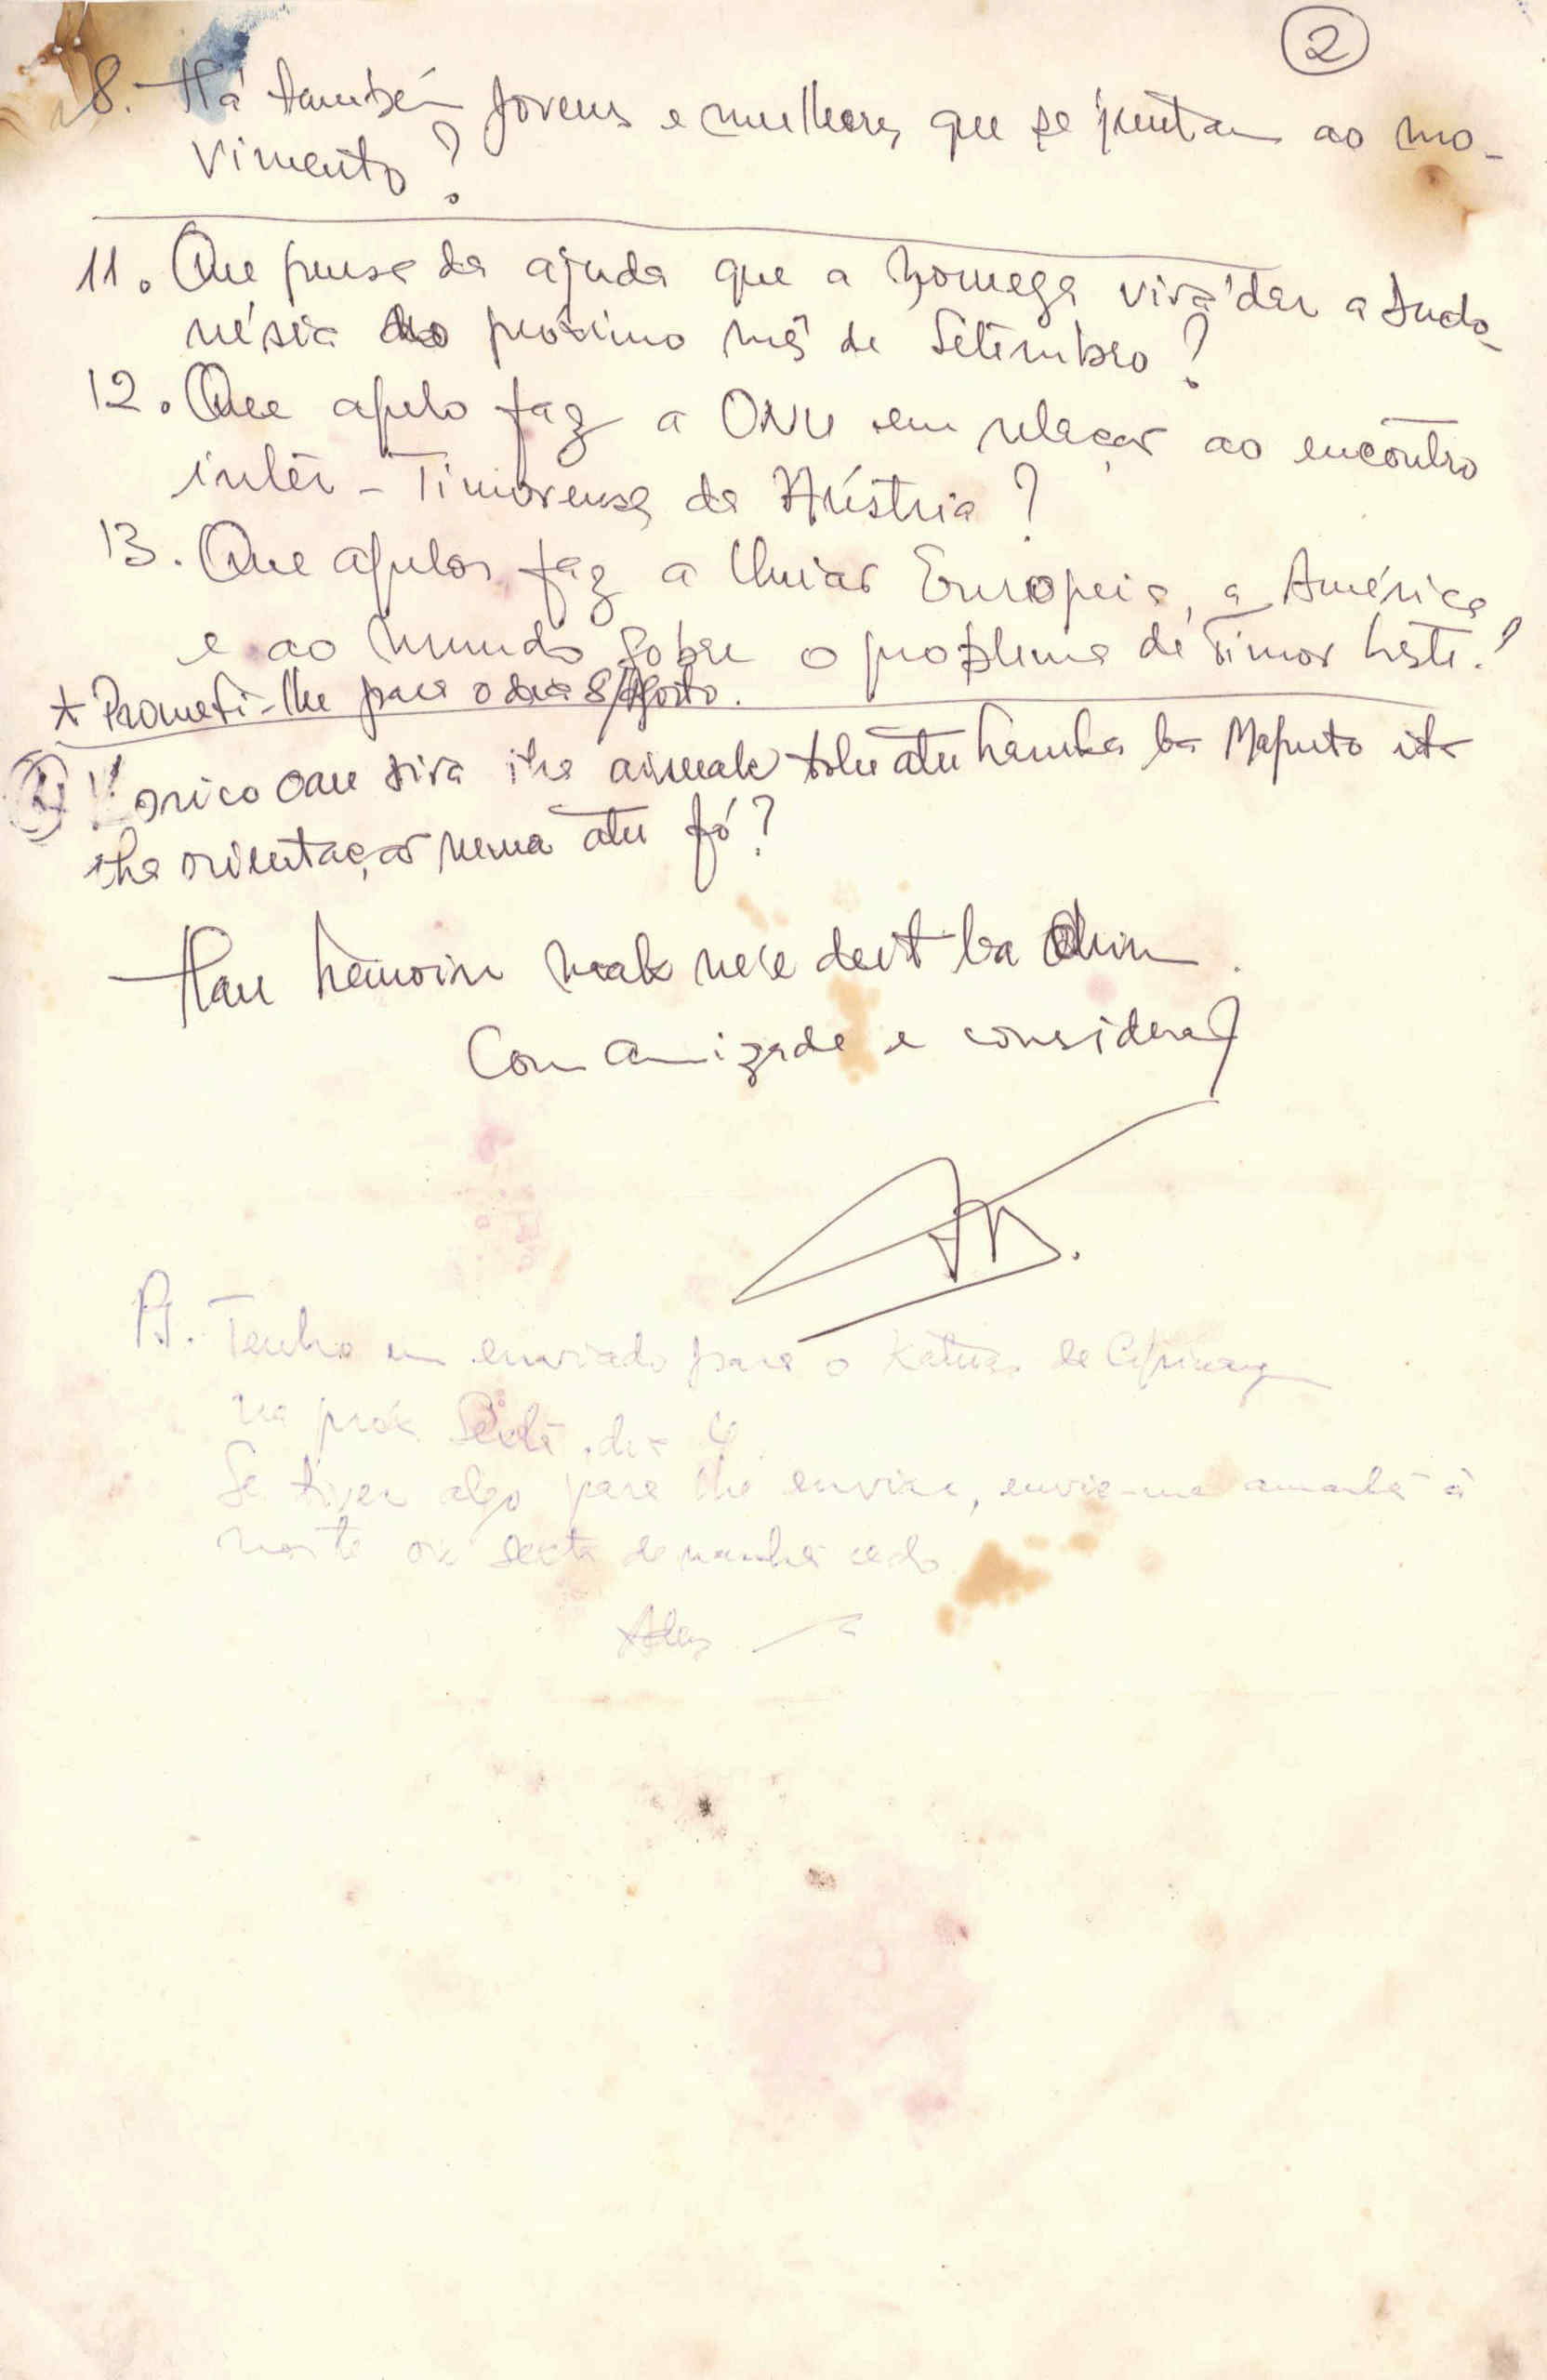 2
8. Há também jovens e mulheres que se juntam ao mo-
vimento?
11. Que pensa da ajuda que a Noruega virá dar a Indo-
nésia no próximo mês de Setembro?
12. Que apelo faz a ONU em relação ao encontro
inter-Timorense da Áustria?
13. Que apelos faz a União Europeia, a América
e ao mundo sobre o problema de Timor Leste?
* Prometi-lhe para o dia 8/Agosto.
Lorico oan sira iha ai-maak tolu atu haruka ba Maputo ita
iha orientação ruma atu fó?
Hau hanoin mak ne'e deit ba ohin.
Com amizade e consideração
PS. Tenho um enviado para o Katuas de Cipinang
na próx. Sexta, dia
Se tiver algo para lhe enviar, envie-me amanhã à
noite ou sexta de manhã cedo